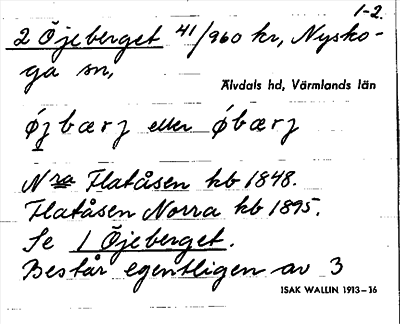 1-2.
2 Öjeberget 41/960 kr, Nysko-
ga sn,
Älvdals hd, Värmlands län
øjbærj eller øbærj
Nra Flatåsen kb 1848.
Flatåsen Norra kb 1895.
Se 1 Öjeberget.
Består egentligen av 3
ISAK WALLIN 1913-16